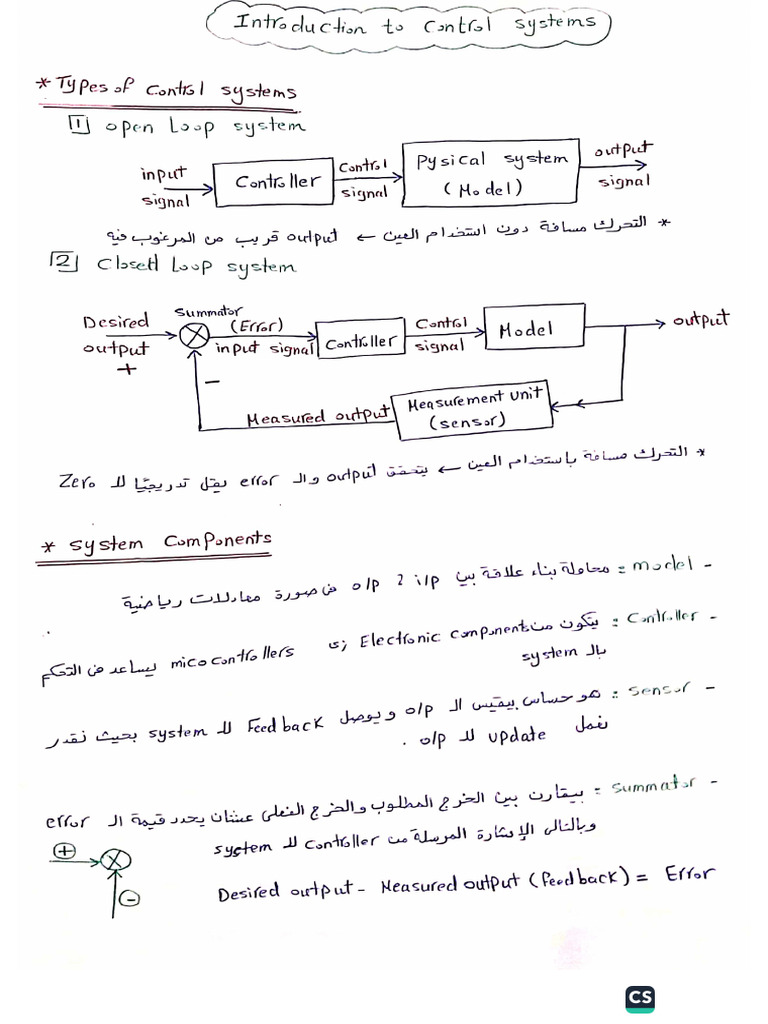 Introduction to Control systems
* Types of Control systems
1 open Loop system
input signal
Controller
Control signal
Pysical system (Model)
output signal
* التحرك مسافة دون استخدام العين ← output قريب من المرغوب فيه
2 Closed Loop system
Desired output +
Summator
(Error) input signal
Controller
Control signal
Model
output
−
Measured output
Measurement unit (sensor)
* التحرك مسافة باستخدام العين ← يتحقق output والـ error يقل تدريجيًا للـ Zero
* System Components
- model : محاولة بناء علاقة بين i/p و o/p في صورة معادلات رياضية
- Controller : يتكون من Electronic components زى micocontrollers يساعد في التحكم
بالـ system
- sensor : هو حساس بيقيس الـ o/p ويوصل Feedback للـ system بحيث نقدر
نعمل update للـ o/p .
- summator : بيقارن بين الخرج المطلوب والخرج الفعلى عشان يحدد قيمة الـ error
وبالتالى الإشارة المرسلة من Controller للـ system
+
−
Desired output - Measured output (feedback) = Error
CS